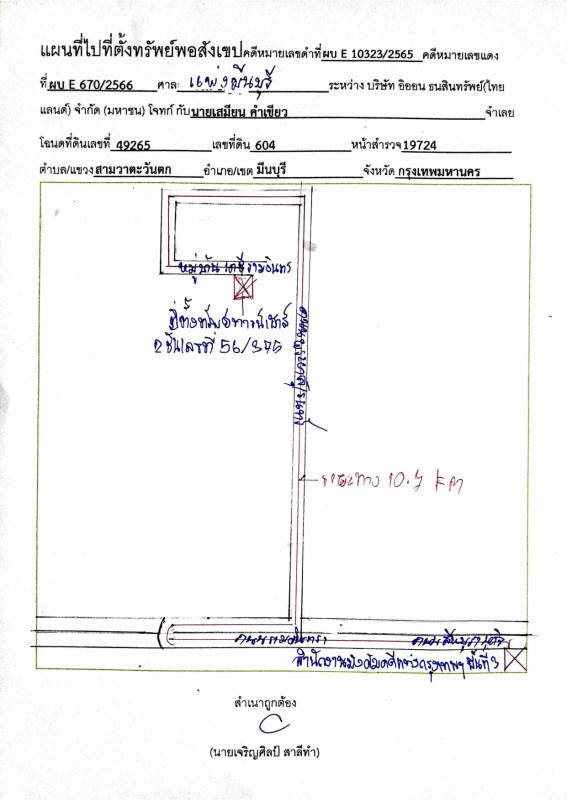 แผนที่ไปที่ตั้งทรัพย์พอสังเขป คดีหมายเลขดำที่ ผบ E 10323/2565 คดีหมายเลขแดง
ที่ ผบ E 670/2566 ศาล แพ่งมีนบุรี ระหว่าง บริษัท อิออน ธนสินทรัพย์(ไทย
แลนด์) จำกัด (มหาชน) โจทก์ กับ นายเสมียน คำเขียว จำเลย
โฉนดที่ดินเลขที่ 49265 เลขที่ดิน 604 หน้าสำรวจ 19724
ตำบล/แขวง สามวาตะวันตก อำเภอ/เขต มีนบุรี จังหวัด กรุงเทพมหานคร
หมู่บ้าน เคซี รามอินทรา
ที่ตั้งทรัพย์ทาวน์เฮาส์
2 ชั้นเลขที่ 56/375
ระยะทาง 10.7 km
ถนนรามอินทรา
ถนนสีหบุรานุกิจ
สำนักงานบังคับคดีแพ่งกรุงเทพฯ พื้นที่ 3
สำเนาถูกต้อง
(นายเจริญศิลป์ สาลีทำ)